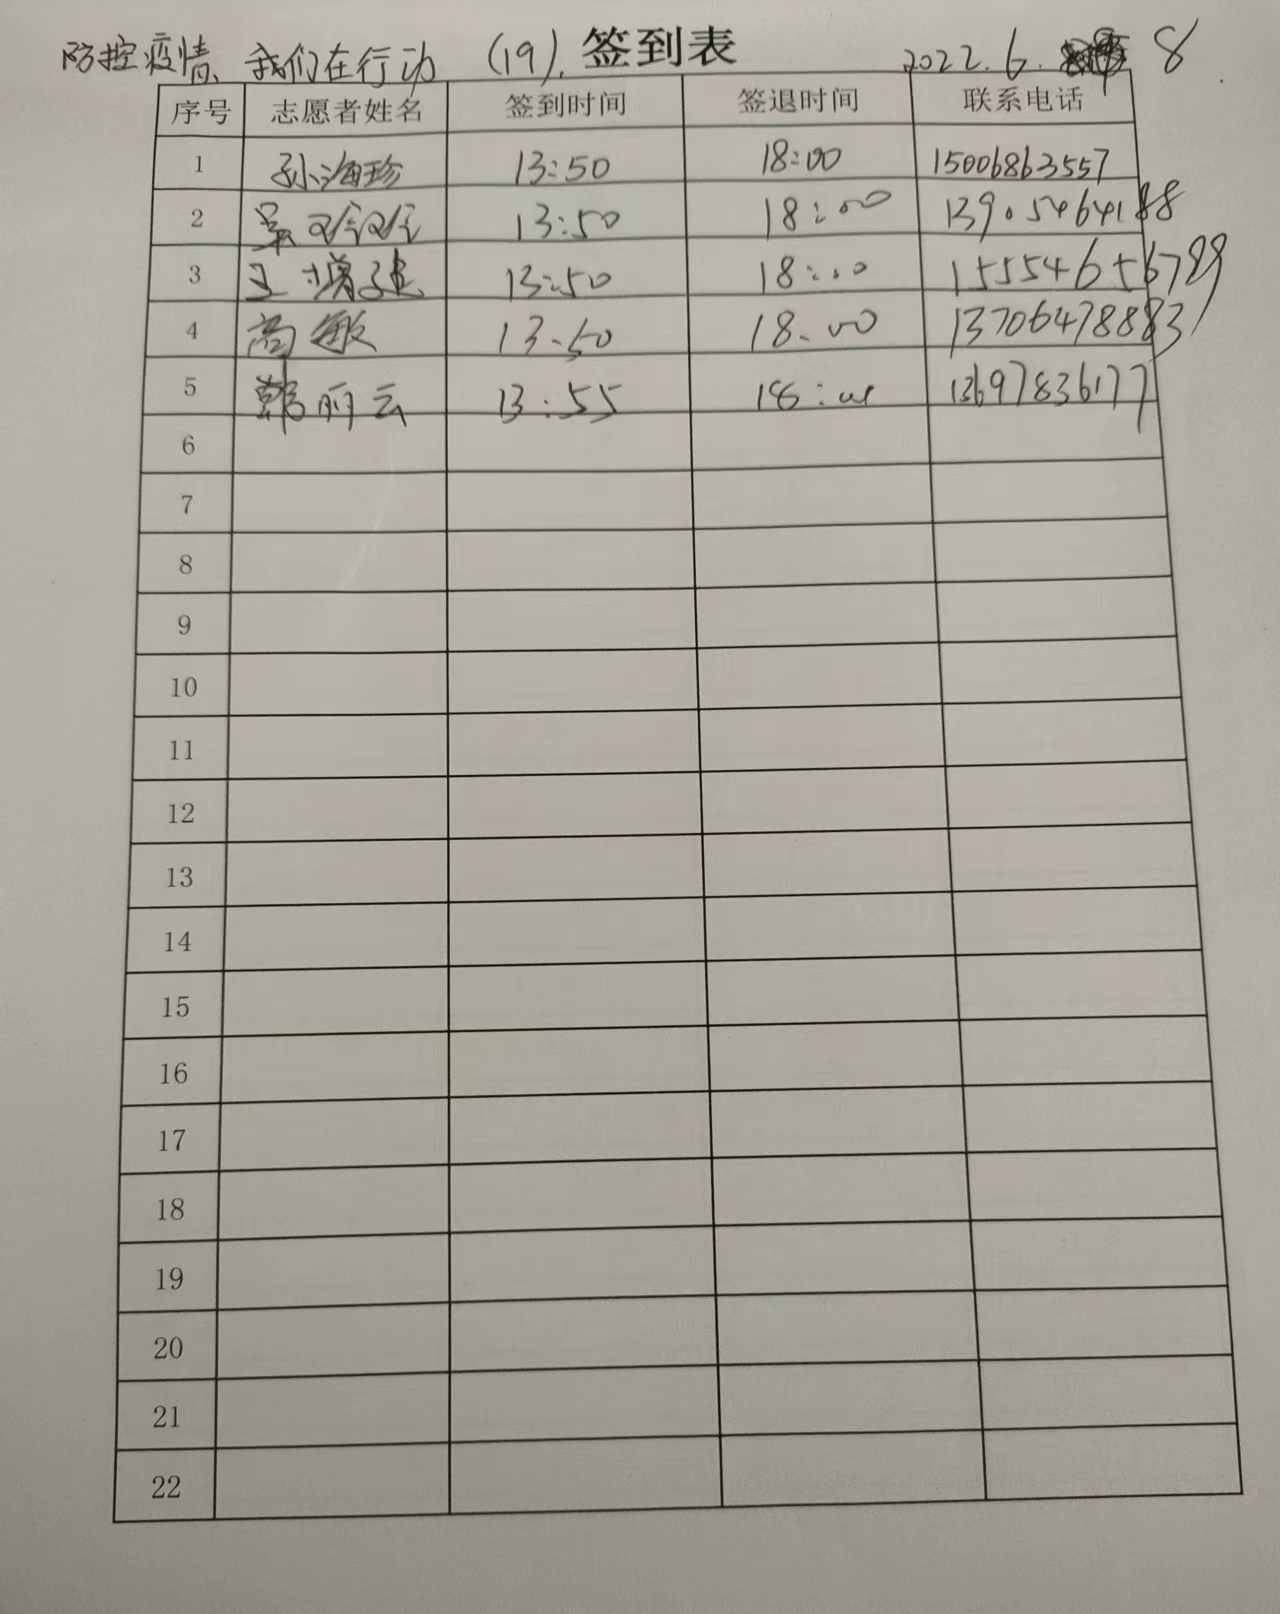 防控疫情 我们在行动 (19). 签到表 2022.6. 8
序号 志愿者姓名 签到时间 签退时间 联系电话
1 孙海珍 13:50 18:00 15006863557
2 13:50 18:00 13905464188
3 王增建 13:50 18:00 15554656789
4 高敏 13:50 18:00 13706478883
5 韩丽云 13:55 18:00 13697836177
6
7
8
9
10
11
12
13
14
15
16
17
18
19
20
21
22